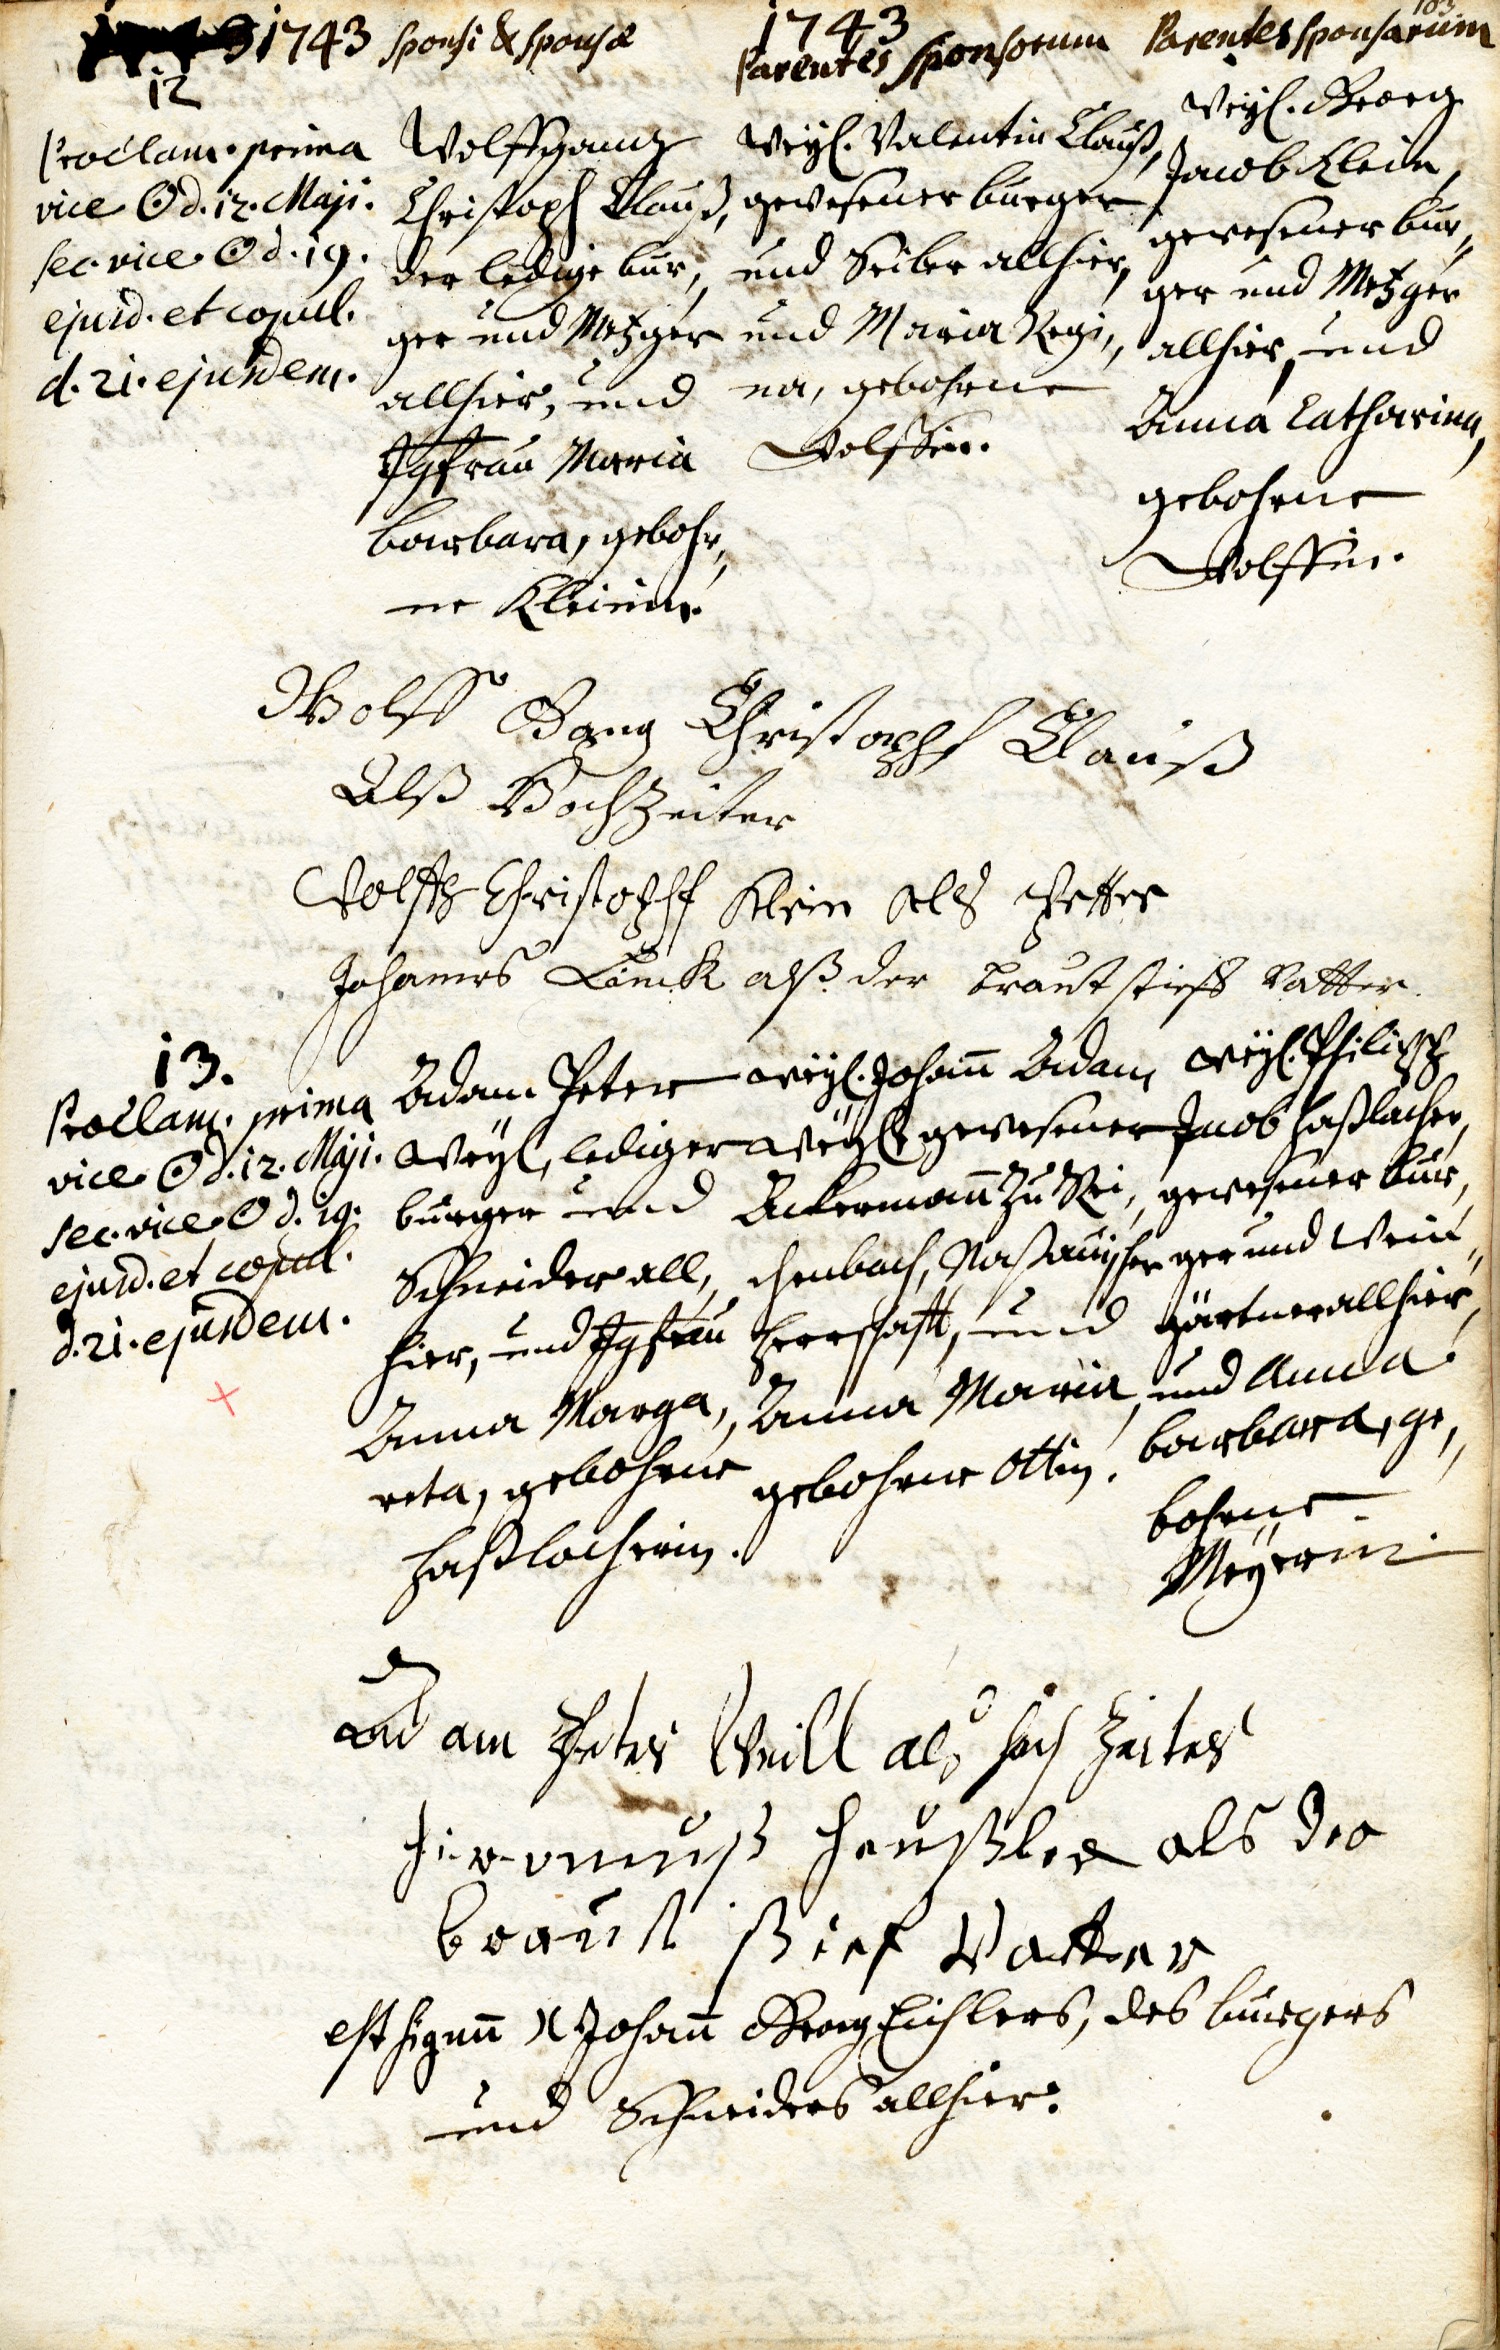 1743 Sponsi & Sponsæ
1743
Parentes Sponsorum
Parentes Sponsarum
183
12
Proclam. prima
vice ☉ d. 12. Maji.
sec. vice ☉ d. 19.
ejusd. et copul.
d. 21. ejusdem.
Wolffgang
Christoph Clauß,
der ledige bur,,
ger und Metzger
allhier, und
Jgfrau Maria
Barbara, gebohr,,
ne Kleinin.
Weyl. Valentin Clauß,
gewesener burger
und Seiler allhier,
und Maria Regi,,
na, gebohrne
Wolffin.
Weyl. Georg
Jacob Klein,
gewesener bur,,
ger und Metzger
allhier, und
Anna Catharina,
gebohrne
Wolffin.
Wolff Gang Christopff Clauß
Alß HochZeiter
Wolffg Christopff Klein Als Vetter
Johannes Linck alß der braut stieff Vatter.
13.
Proclam. prima
vice ☉ d. 12. Maji.
sec. vice ☉ d. 19.
ejusd. et copul.
d. 21. ejusdem.
Adam Peter
Weyl, lediger
burger und
Schneider all,,
hier, und Jgfrau
Anna Marga,,
reta, gebohrne
Haßlocherin.
Weyl. Johañ Adam
Weyl, gewesener
Ackermañ zu Rei,,
chenbach, Naßauischer
Herrschafft, und
Anna Maria,
gebohrne Ottin.
Weyl. Philipp
Jacob Haßlacher,
gewesener bur,,
ger und Wein,,
gärtner allhier,
und Anna
Barbara, ge,,
bohrne
Meyerin.
Ad am Peter Weill als hoch Zeiter
Hieronimuß Heußler als der
braut stief Vatter
est signũ X Johañ Georg Eichlers, des burgers
und Schneiders allhier.